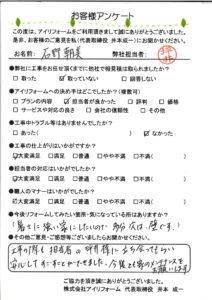 お客様アンケート
この度は、アイリフォームをご利用頂きまして誠にありがとうございました。
是非、お客様のご意見を私(代表取締役 井本成一)にお聞かせください。
お名前: 石野 様 弊社担当者:
●弊社に工事をお任せ頂くまでに他社で相見積は取られましたか?
□取った ☑取っていない □回答しない
●アイリフォームへの決め手はどこでしたか?(複数可)
□プランの内容 ☑担当者が良かった □評判 □価格
□サービスや対応の良さ □会社の信頼性 □その他
●工事中トラブル等はありませんでしたか?
□あった( ) ☑なかった
●工事の仕上がりはいかがですか?
☑大変満足 □満足 □普通 □やや不満 □不満( )
●担当者の対応はいかがでしたか?
☑大変満足 □満足 □普通 □やや不満 □不満( )
●職人のマナーはいかがでしたか?
☑大変満足 □満足 □普通 □やや不満 □不満( )
●今後リフォームしてみたい箇所・気になっている所はありますか?
暑さに強い家にしたいので
●その他・ご感想等ございましたらお聞かせください。
工事の際も担当者の
ご協力を頂き誠にありがとうございました。
株式会社アイリフォーム 代表取締役 井本 成一